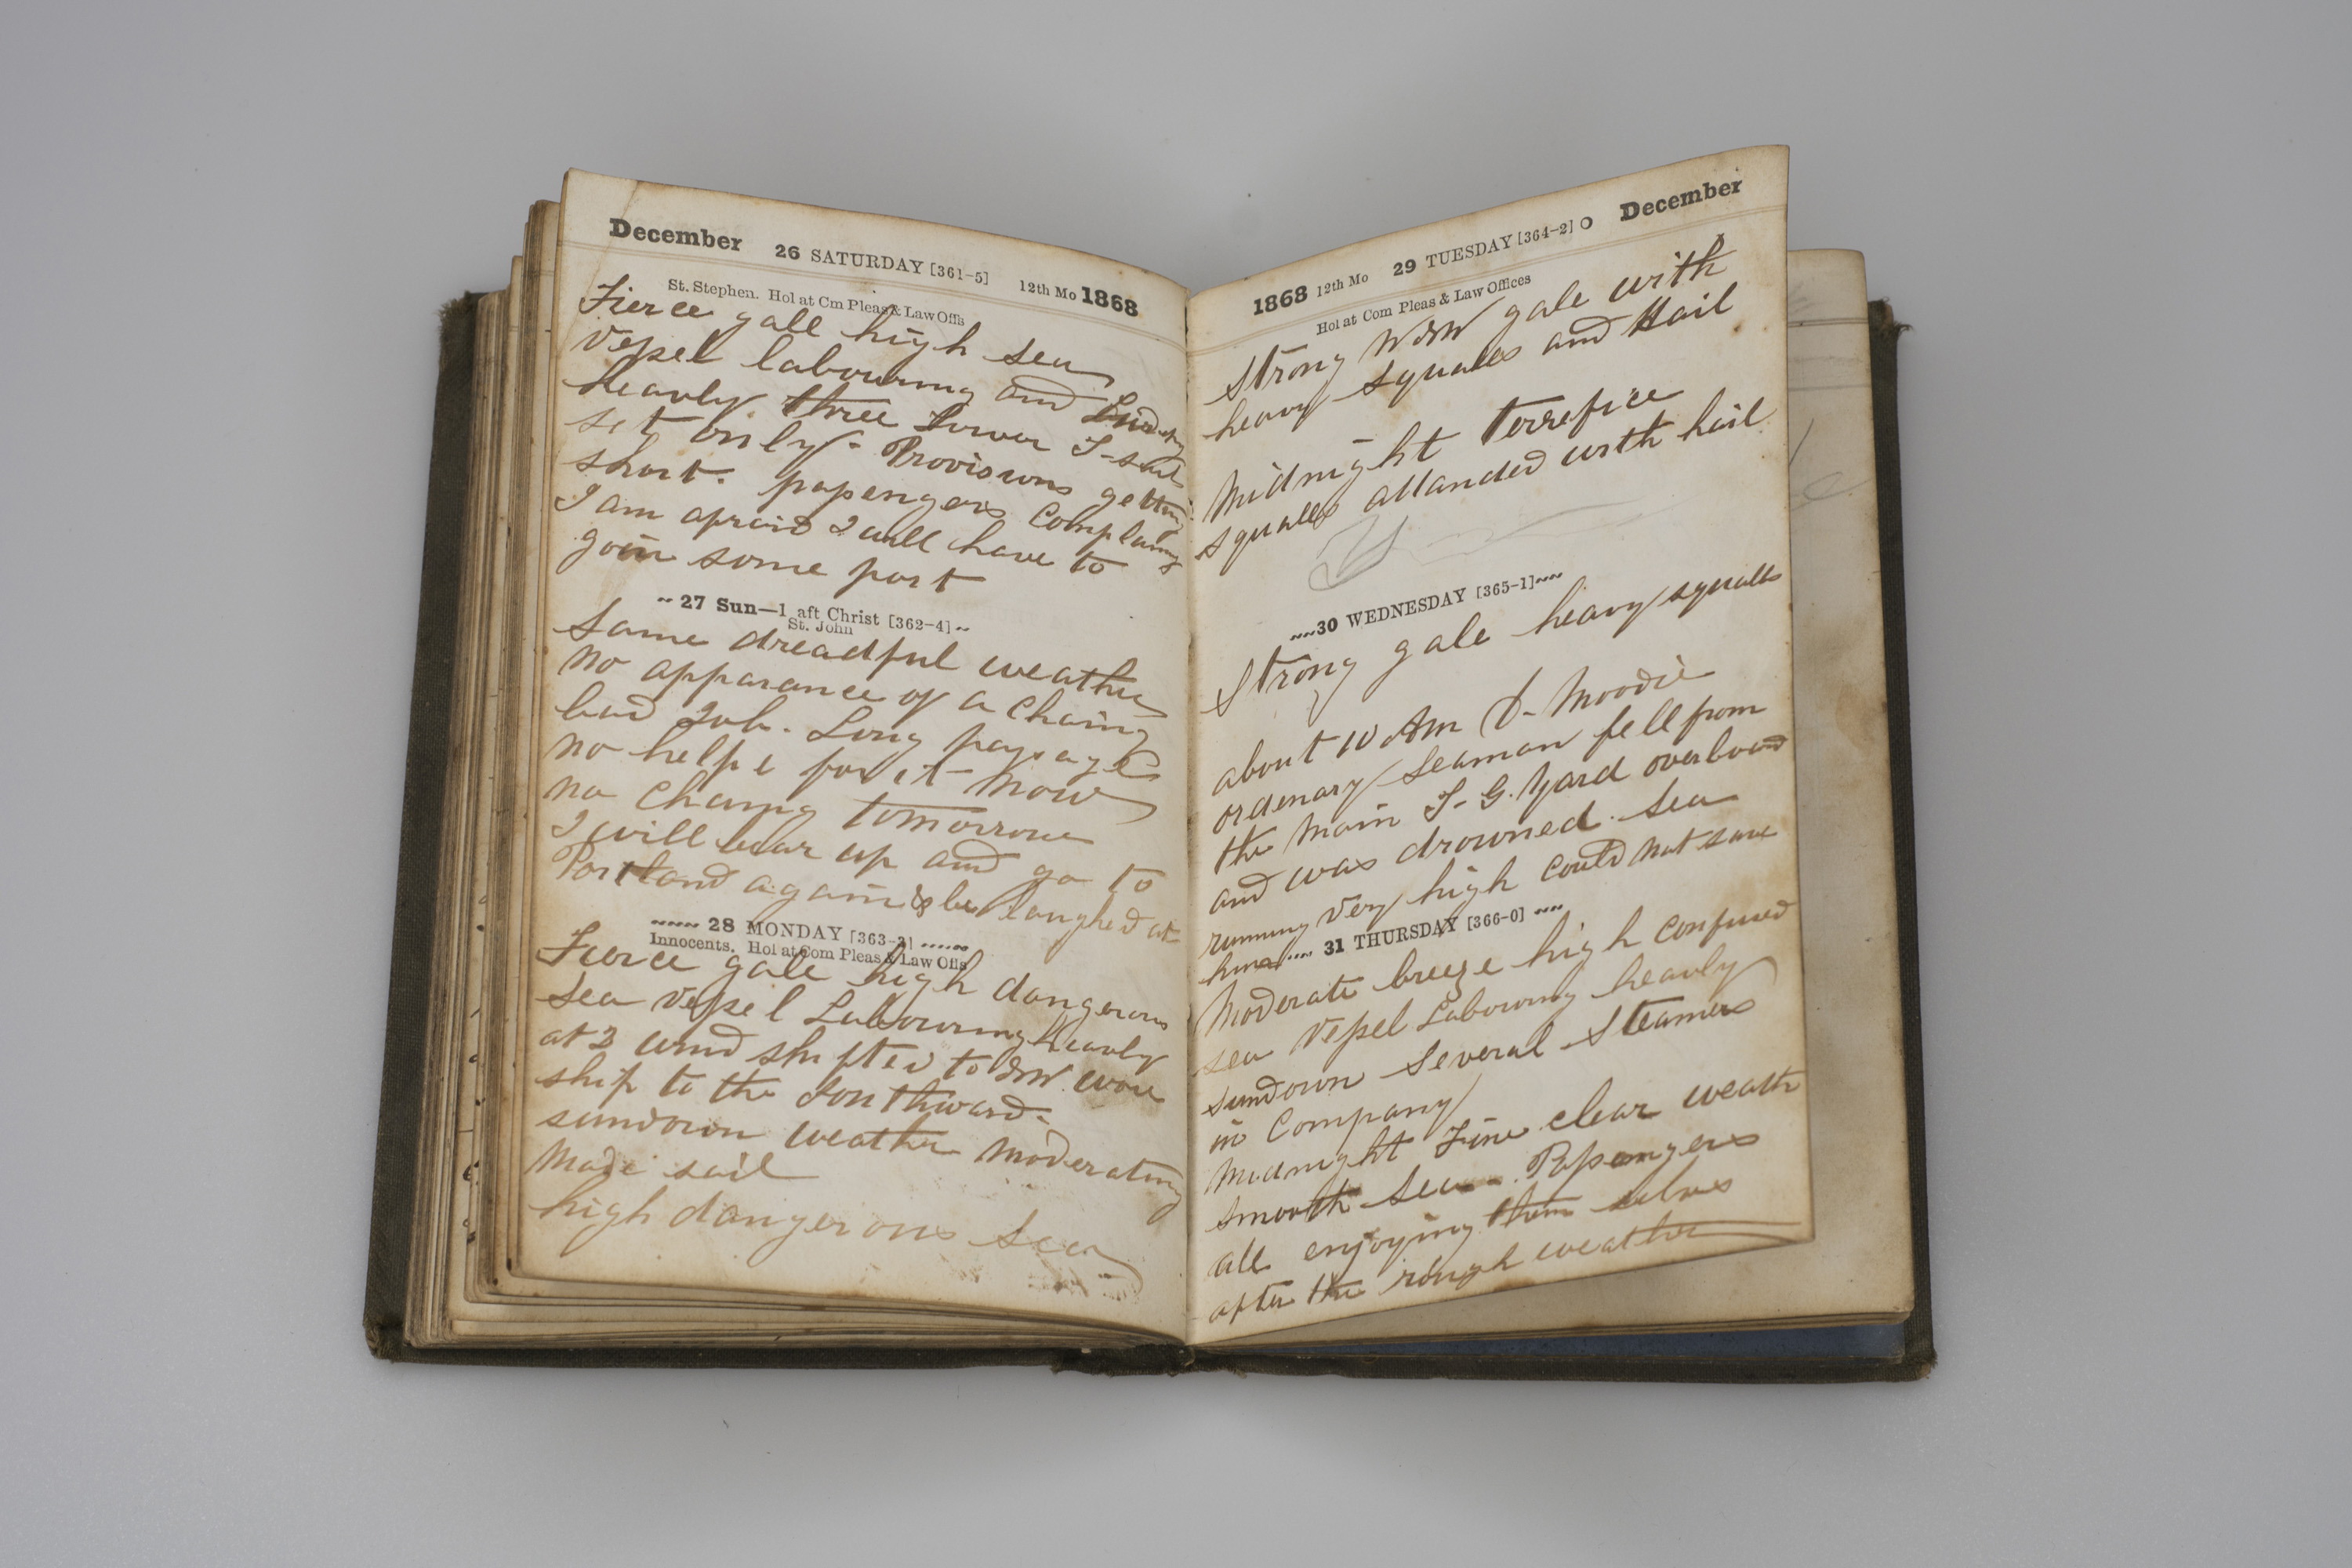 December 26 SATURDAY [361-5] 12th Mo 1868
St. Stephen. Hol at Cm Pleas & Law Offs
Fierce gale high sea
Vessel labouring and
heavly. three Lower T-sail
set only - Provisions getting
short. passengers Complaining
I am afraid I will have to
go in some port
27 Sun—1 aft Christ [362-4]
St. John
Same dreadful weather
No apparance of a Chaing
bad Job. Long passage
no helpe for it now
na Chaing tomorrow
I will bear up and go to
Portland again & be laughed at
28 MONDAY [363-3]
Innocents. Hol at Com Pleas & Law Offs
Fierce gale high dangerous
Sea Vessel Labouring heavly
at 3 wind shifted to SW. wore
ship to the Southward.
sundown weather Moderating
Made sail
high dangerous Sea
1868 12th Mo 29 TUESDAY [364-2] O December
Hol at Com Pleas & Law Offices
Strong WSW gale with
heavy squalls and Hail
Midnight terrefice
squalls attanded with hail
30 WEDNESDAY [365-1]
Strong gale heavy squalls
about 10 AM Moodie
ordenary Seaman fell from
the Main T-G. Yard overboard
and was drowned. Sea
running Very high Could Not save
him
31 THURSDAY [366-0]
Moderate breeze high Confused
sea Vessel Labouring heavly
sundown Several Steamers
in Company
Midnight Fine clear weath
smooth Sea - Passengers
all enjoying them selves
after the rough weather